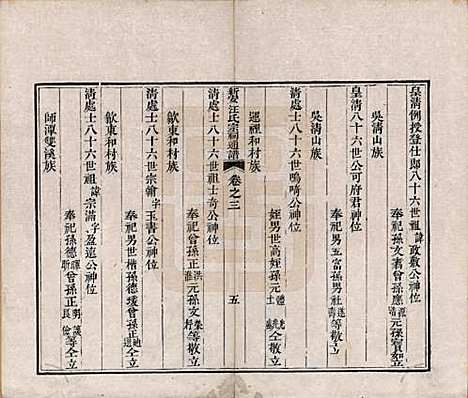 皇清例授登仕郎八十六世祖諱政敷公神位
奉祀曾孫文燾曾孫應淮清元孫寶如立
吳清山族
皇清八十六世公可府君神位
奉祀男五富孫男社等敬立
吳清山族
清處士八十六世鳴暗公神位
姪男世高姪孫元士仝敬立
遲裡和村族
新安汪氏宗祠通譜 卷之三 五
清處士八十六世祖士奇公神位
奉祀曾孫正洪元孫文等敬立
歙東和村族
清處士八十六世宗翰字玉書公神位
奉祀男世楷孫德境曾孫正等仝立
歙東和村族
清處士八十六世祖諱宗滿字盈遠公神位
奉祀曾孫正元孫等仝立
師潭雙溪族